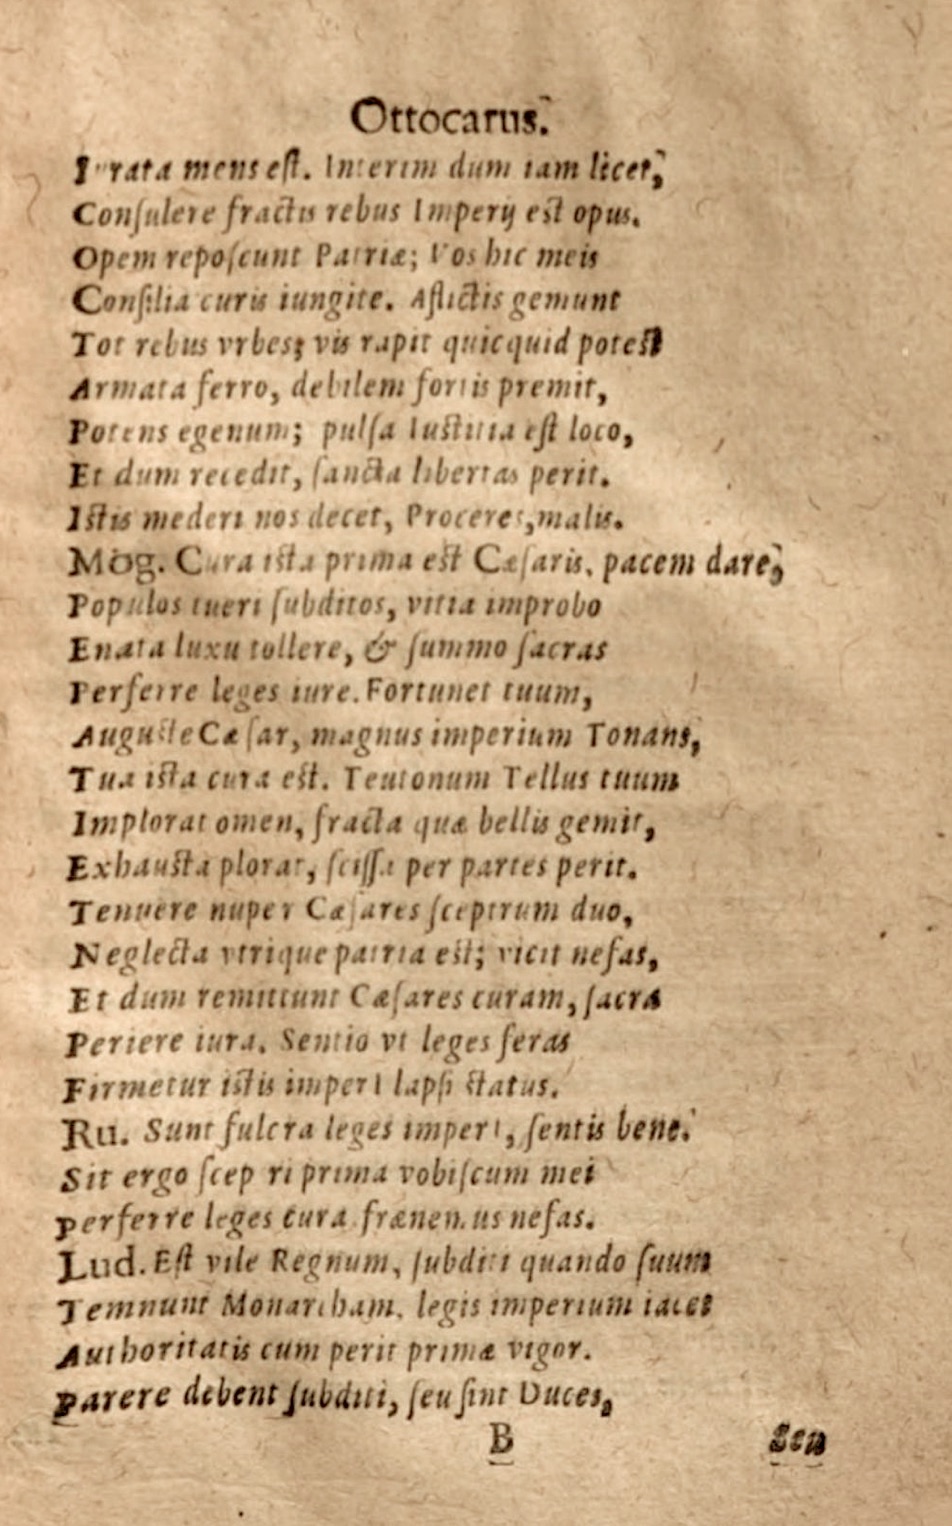 Ottocarus.
Irata mens est. Interim dum iam licet,
Conſulere fractis rebus Imperij est opus.
Opem repoſcunt Patriæ; Vos hic meis
Conſilia curis iungite. Aflictis gemunt
Tot rebus vrbes; vis rapit quicquid potest
Armata ferro, debilem fortis premit,
Potens egenum; pulſa Iustitia eſt loco,
Et dum recedit, ſancta libertas perit.
Istis mederi nos decet, Proceres, malis.
Mog. Cura ista prima est Cæſaris, pacem dare,
Populos tueri ſubditos, vitia improbo
Enata luxu tollere, & ſummo ſacras
Perferre leges iure. Fortunet tuum,
Auguste Cæſar, magnus imperium Tonans,
Tua ista cura est. Teutonum Tellus tuum
Implorat omen, fracta quæ bellis gemit,
Exhausta plorat, ſciſſa per partes perit.
Tenuere nuper Cæſares ſceptrum duo,
Neglecta vtrique patria est; vicit nefas,
Et dum remittunt Cæſares curam, ſacra
Periere iura. Sentio vt leges feras
Firmetur istis imperI lapſi status.
Ru. Sunt fulcra leges imperI, ſentis bene.
Sit ergo ſceptri prima vobiſcum mei
perferre leges cura frænemus nefas.
Lud. Eſt vile Regnum, ſubditi quando ſuum
Temnunt Monarcham. legis imperium iacet
Authoritatis cum perit primæ vigor.
parere debent ſubditi, ſeu ſint Duces,
B
Seu